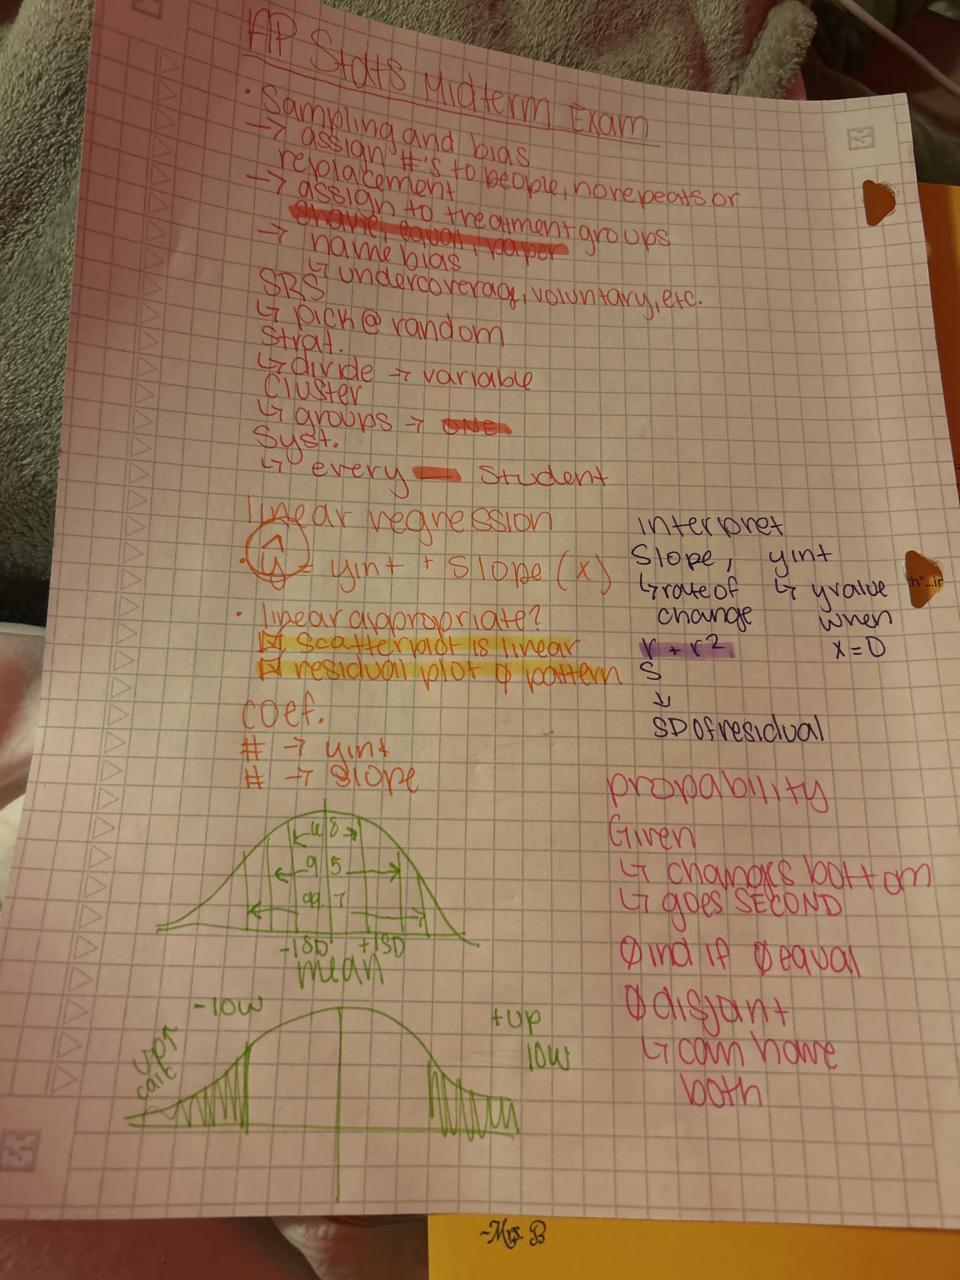 AP Stats Midterm Exam
• Sampling and bias
→ assign #'s to people, no repeats or
replacement
→ assign to treatment groups
→ name bias
↳ undercoverag, voluntary, etc.
SRS
↳ pick @ random
Strat.
↳ divide → variable
Cluster
↳ groups →
Syst.
↳ every student
linear regression
• ŷ = yint + slope (x)
• linear appropriate?
☒ scatterplot is linear
☒ residual plot ∅ pattern
coef.
# → yint
# → slope
interpret
slope, yint
↳ rate of ↳ y value
change when
r + r² x=0
S
↓
SD of residual
68
95
99 7
-1SD +1SD
mean
-low
+up
low
probability
Given
↳ changes bottom
↳ goes SECOND
∅ ind if ∅ equal
∅ disjant
↳ can have
both
~Mrs. B